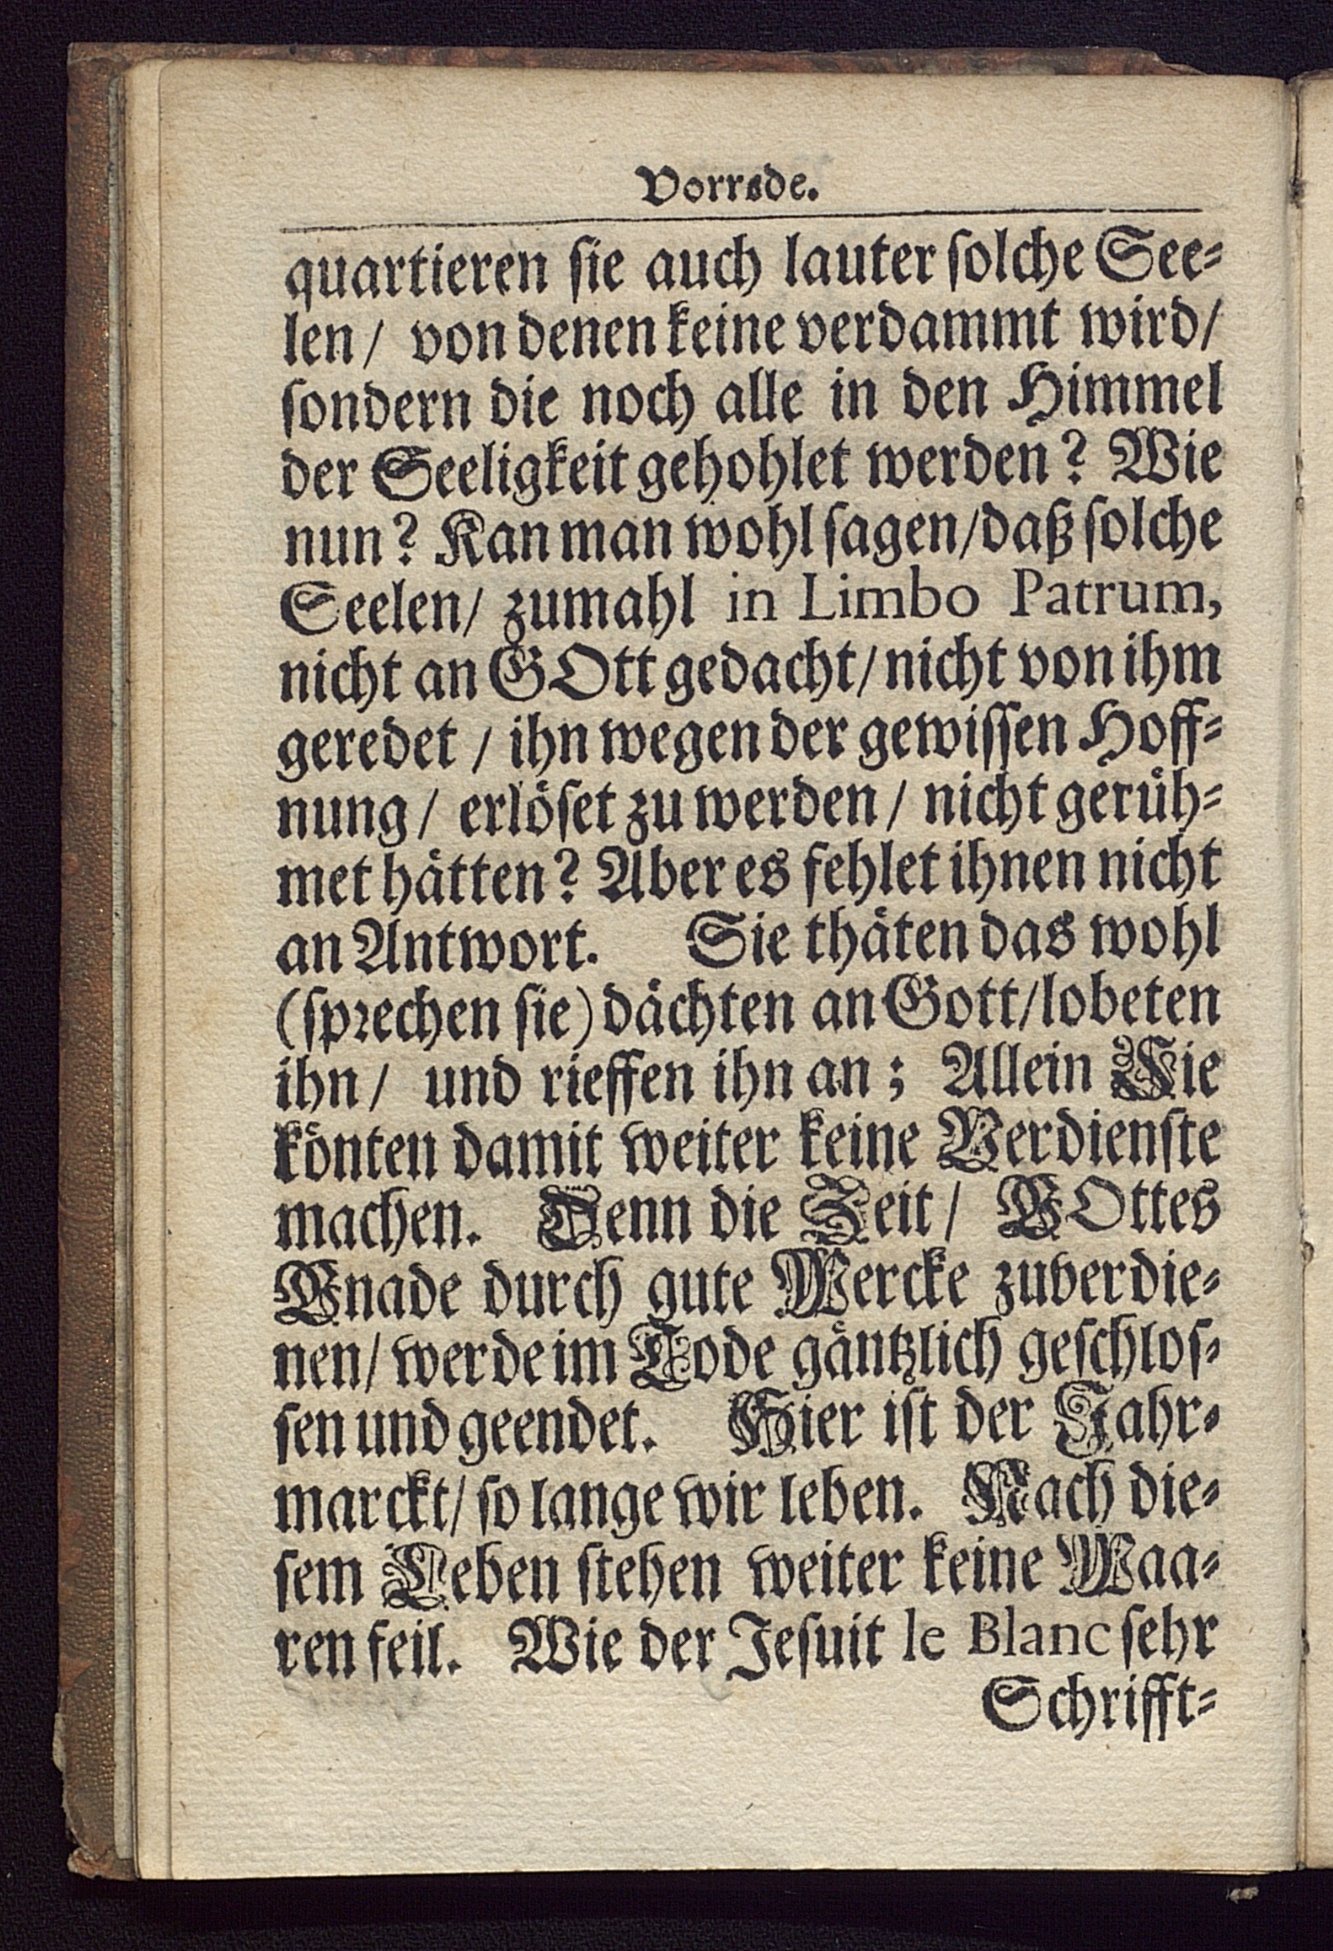 Vorrede.
quartieren ſie auch lauter ſolche See-
len/ von denen keine verdammt wird/
ſondern die noch alle in den Himmel
der Seeligkeit gehohlet werden? Wie
nun? Kan man wohl ſagen/daß ſolche
Seelen/ zumahl in Limbo Patrum,
nicht an GOtt gedacht/nicht von ihm
geredet / ihn wegen der gewiſſen Hoff-
nung/ erlöſet zu werden / nicht gerüh-
met hätten? Aber es fehlet ihnen nicht
an Antwort. Sie thäten das wohl
(ſprechen ſie) dächten an Gott/lobeten
ihn/ und rieffen ihn an; Allein Sie
könten damit weiter keine Verdienſte
machen. Denn die Zeit/ GOttes
Gnade durch gute Wercke zuverdie-
nen/ werde im Tode gäntzlich geſchloſ-
ſen und geendet. Hier iſt der Jahr-
marckt/ ſo lange wir leben. Nach die-
ſem Leben ſtehen weiter keine Waa-
ren feil. Wie der Jeſuit le Blanc ſehr
Schrifft-